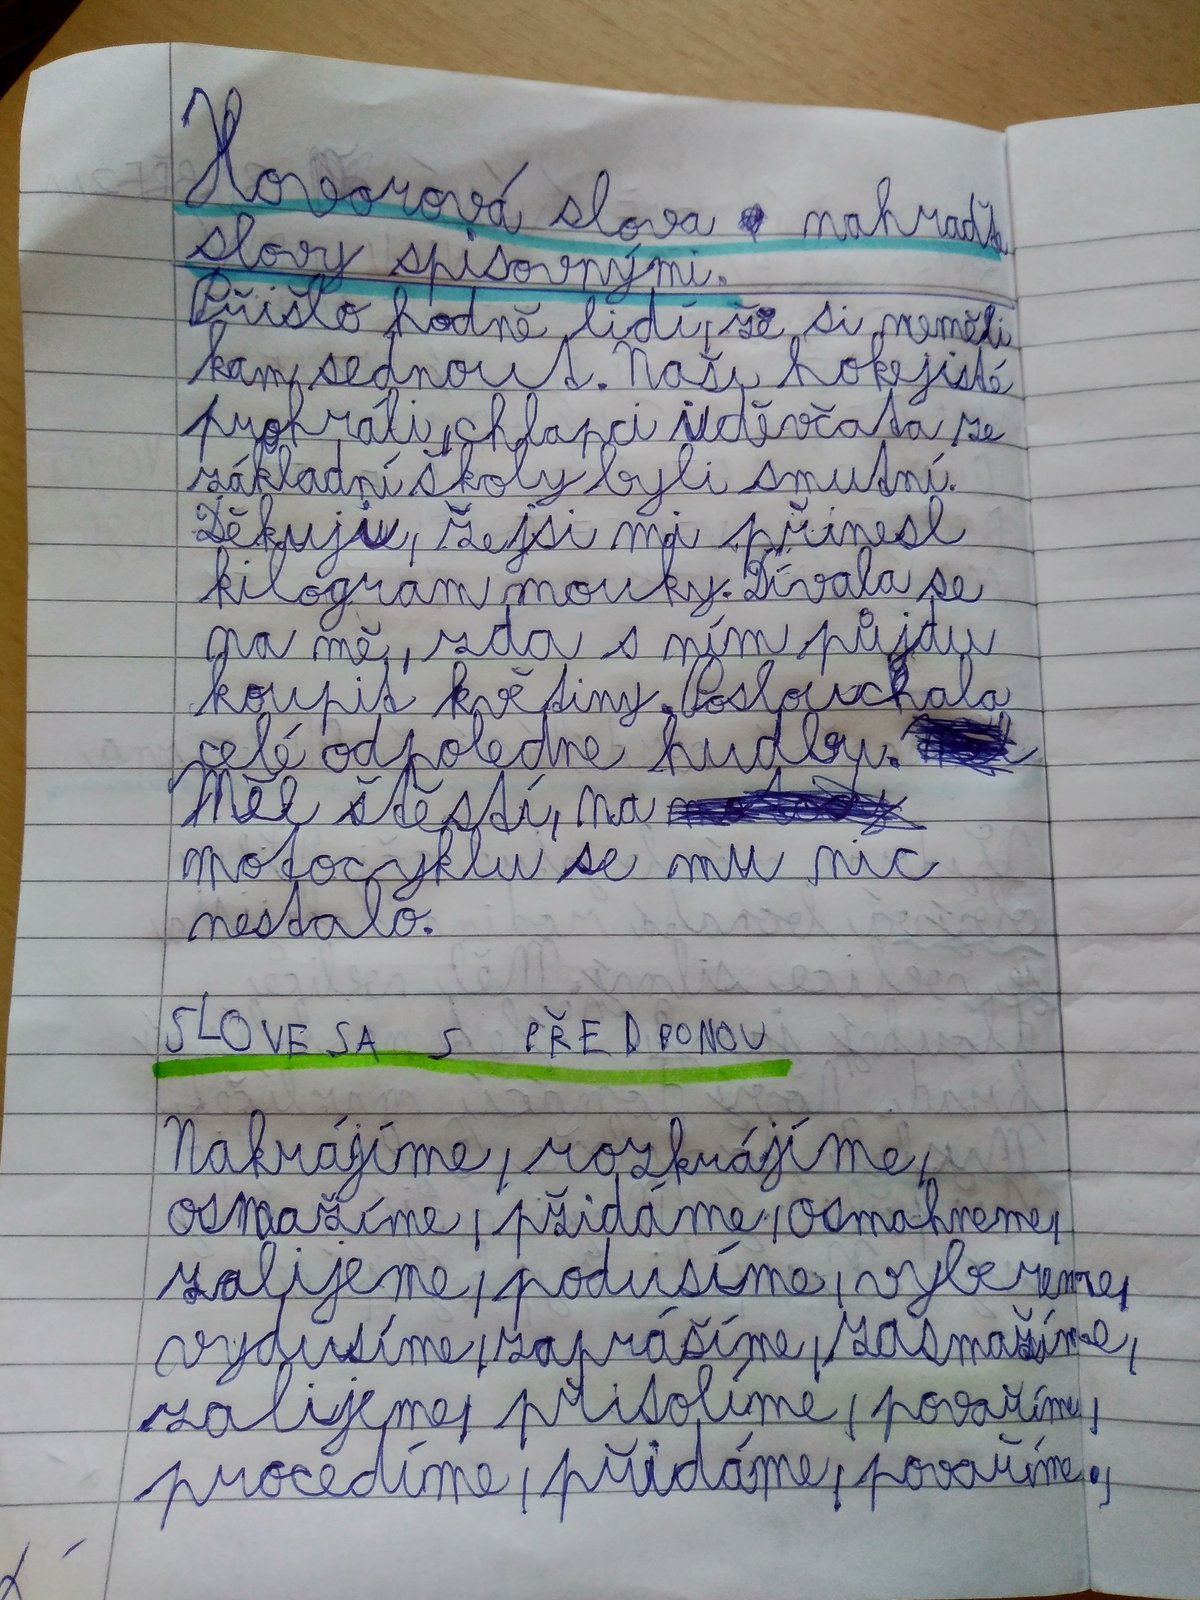 Hovorová slova nahraďte
slovy spisovnými.
Přišlo hodně lidí, že si neměli
kam sednout. Naši hokejisté
prohráli, chlapci i děvčata ze
základní školy byli smutní.
Děkuji, žejsi mi přinesl
kilogram mouky. Dívala se
na mě, zda s ním půjdu
koupit květiny. Poslouchala
celé odpoledne hudbu.
Měl štěstí, na
motocyklu se mu nic
nestalo.
SLOVESA S PŘEDPONOU
Nakrájíme, rozkrájíme,
osmažíme, přidáme, osmahneme,
zalijeme, podusíme, vybereme,
vydusíme, zaprášíme, zasmažíme,
zalijeme, přisolíme, povaříme,
procedíme, přidáme, povaříme,